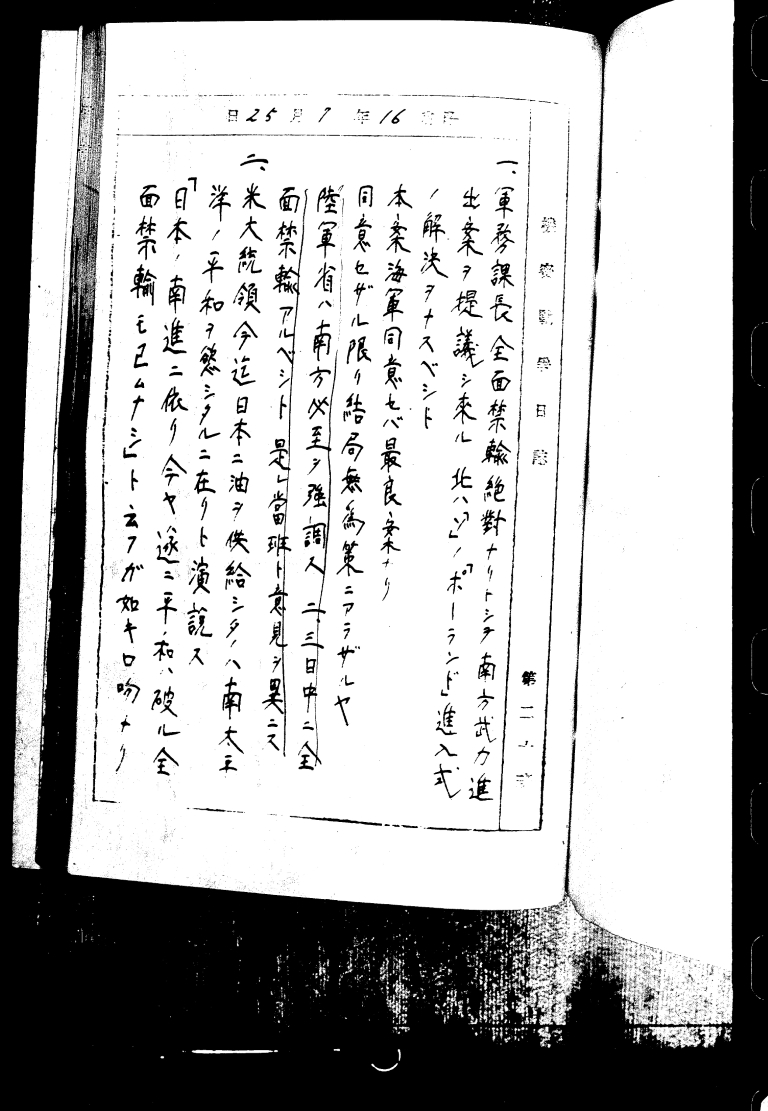 機密戰爭日誌
第二十班
昭和16年7月25日
一、軍務課長全面禁輸絶對ナリトシテ南方武力進
出案ヲ提議シ來ル 北ハ「ソ」ノ「ポーランド」進入式
ノ解決ヲナスベシト
本案海軍同意セバ最良案ナリ
同意セザル限リ結局無為策ニアラザルヤ
陸軍省ハ南方必至ヲ強調ス 二、三日中ニ全
面禁輸アルベシト 是レ當班ト意見ヲ異ニス
二、米大統領今迄日本ニ油ヲ供給シタノハ南太平
洋ノ平和ヲ慾シタルニ在リト演説ス
「日本ノ南進ニ依リ今ヤ遂ニ平和ハ破ル全
面禁輸モ已ムナシ」ト云フガ如キ口吻ナリ